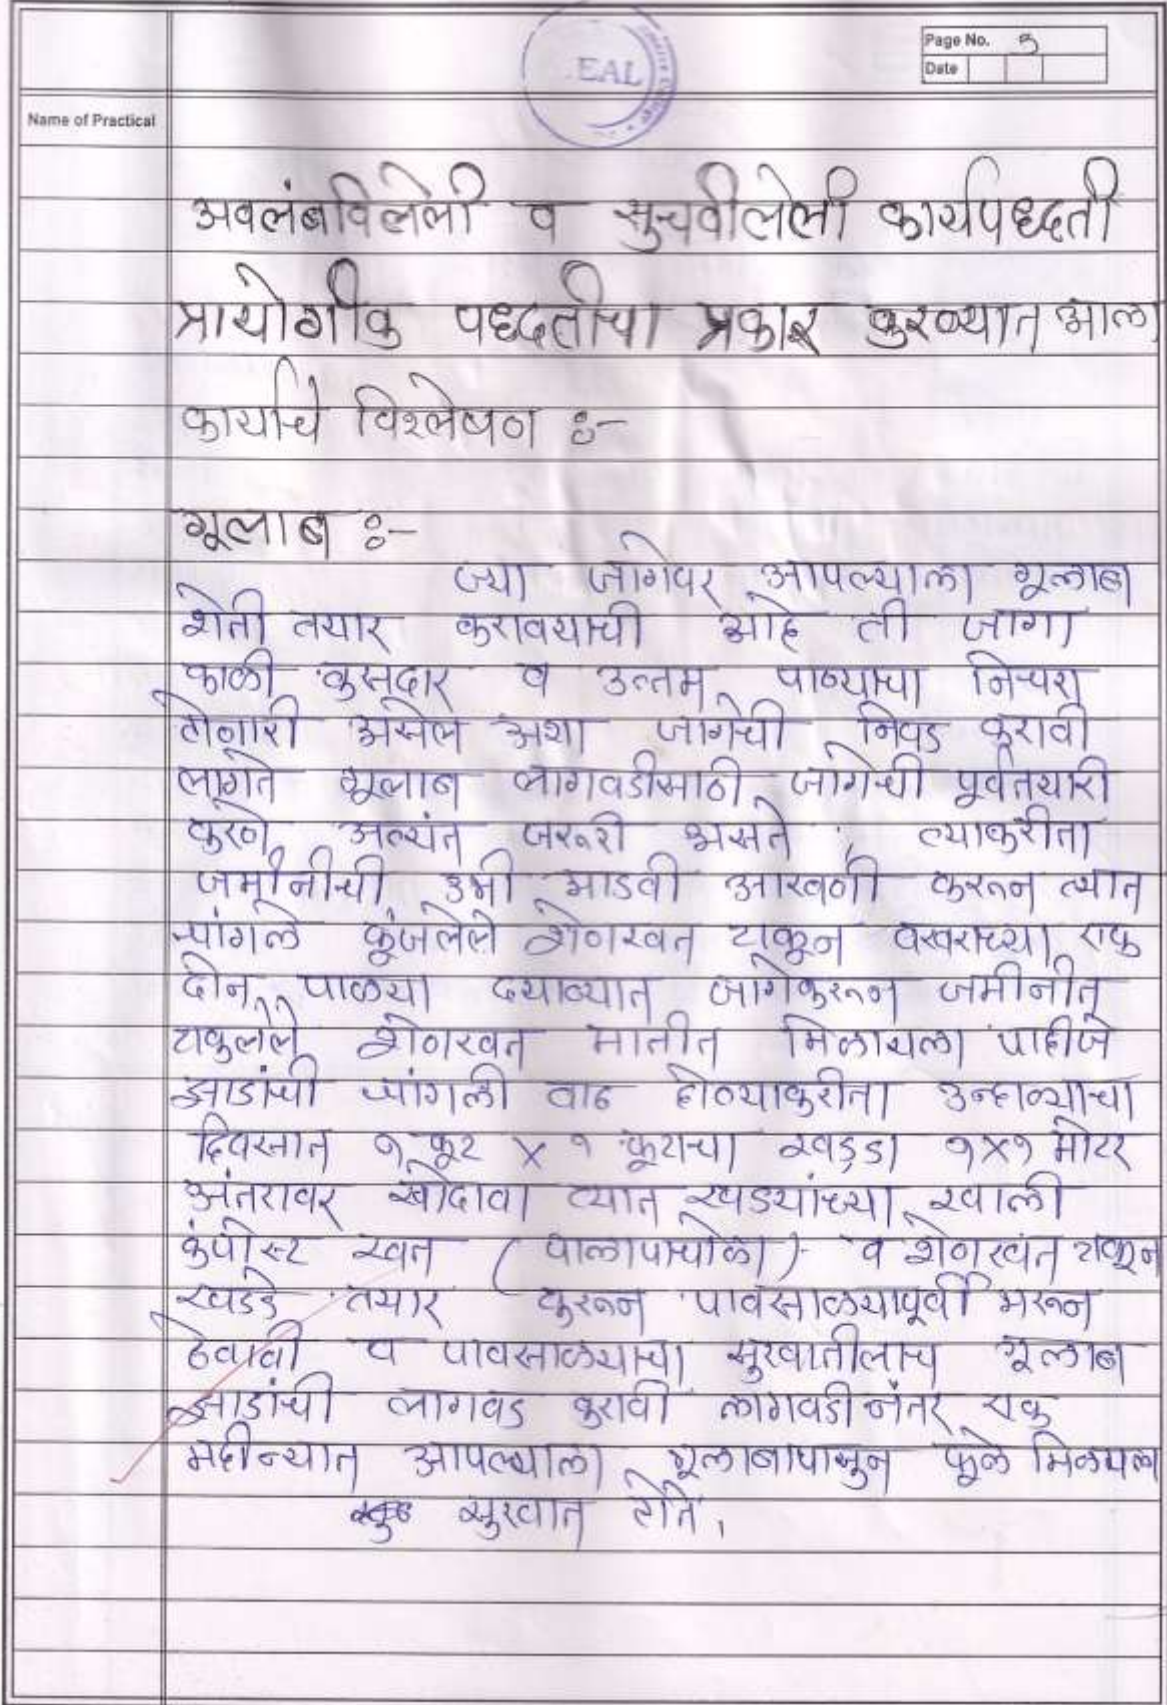 Page No. ३
Date
EAL
Name of Practical
अवलंबविलेली व सुचवीलेली कार्यपध्दती
प्रायोगीक पध्दतीचा प्रकार करण्यात आला
कार्याचे विश्लेषण :-
गूलाब :-
ज्या जागेवर आपल्याला गूलाब
शेती तयार करावयाची आहे ती जागा
काळी कसदार व उत्तम पाण्याचा निचरा
होणारी असेल अशा जागेची निवड करावी
लागते गूलाब लागवडीसाठी जागेची पूर्वतयारी
करणे अत्यंत जरूरी असते, त्याकरीता
जमीनीची उभी आडवी आखणी करून त्यात
चांगले कूजलेले शेणखत टाकून वखराच्या एक
दोन पाळया दयाव्यात जागेकरून जमीनीत
टाकलेले शेणखत मातीत मिळायला पाहीजे
झाडांची चांगली वाढ होण्याकरीता उन्हाळ्याचा
दिवसात १ फूट X १ फूटाचा खड्डा १X१ मीटर
अंतरावर खोदावा त्यात खडयांच्या खाली
कंपोस्ट खत (पालापाचोळा) व शेणखत टाकून
खडडे तयार करून पावसाळयापूर्वी भरून
ठेवावी व पावसाळयाचा सुरवातीलाच गूलाब
झाडांची लागवड करावी लागवडी नंतर एक
महीन्यात आपल्याला गूलाबापासुन फूले मिळयला
सुरवात होते.